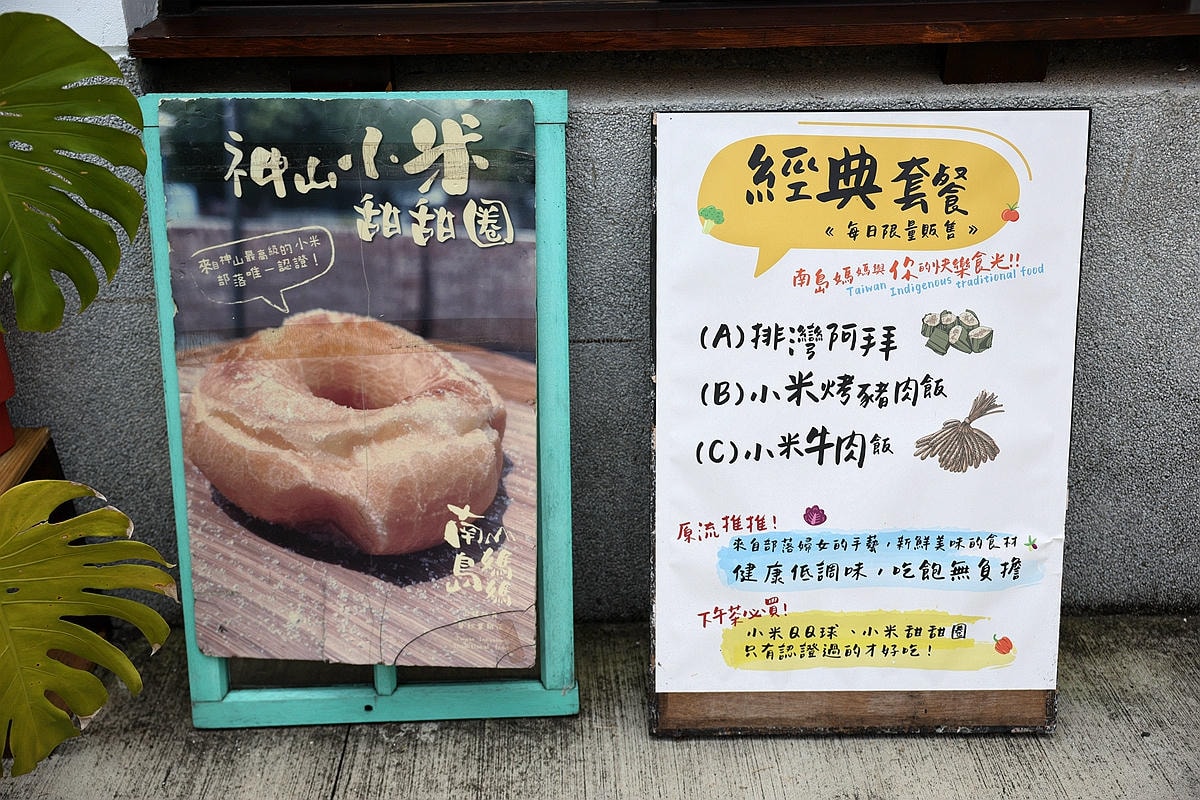 神山小米
甜甜圈
來自神山最高級的小米
部落唯一認證!
南島媽媽
經典套餐
《 每日限量販售 》
南島媽媽與你的快樂食光!!
Taiwan Indigenous traditional food
(A)排灣阿拜
(B)小米烤豬肉飯
(C)小米牛肉飯
原流推推!
來自部落婦女的手藝,新鮮美味的食材
健康低調味,吃飽無負擔
下午茶必買!
小米QQ球、小米甜甜圈
只有認證過的才好吃!